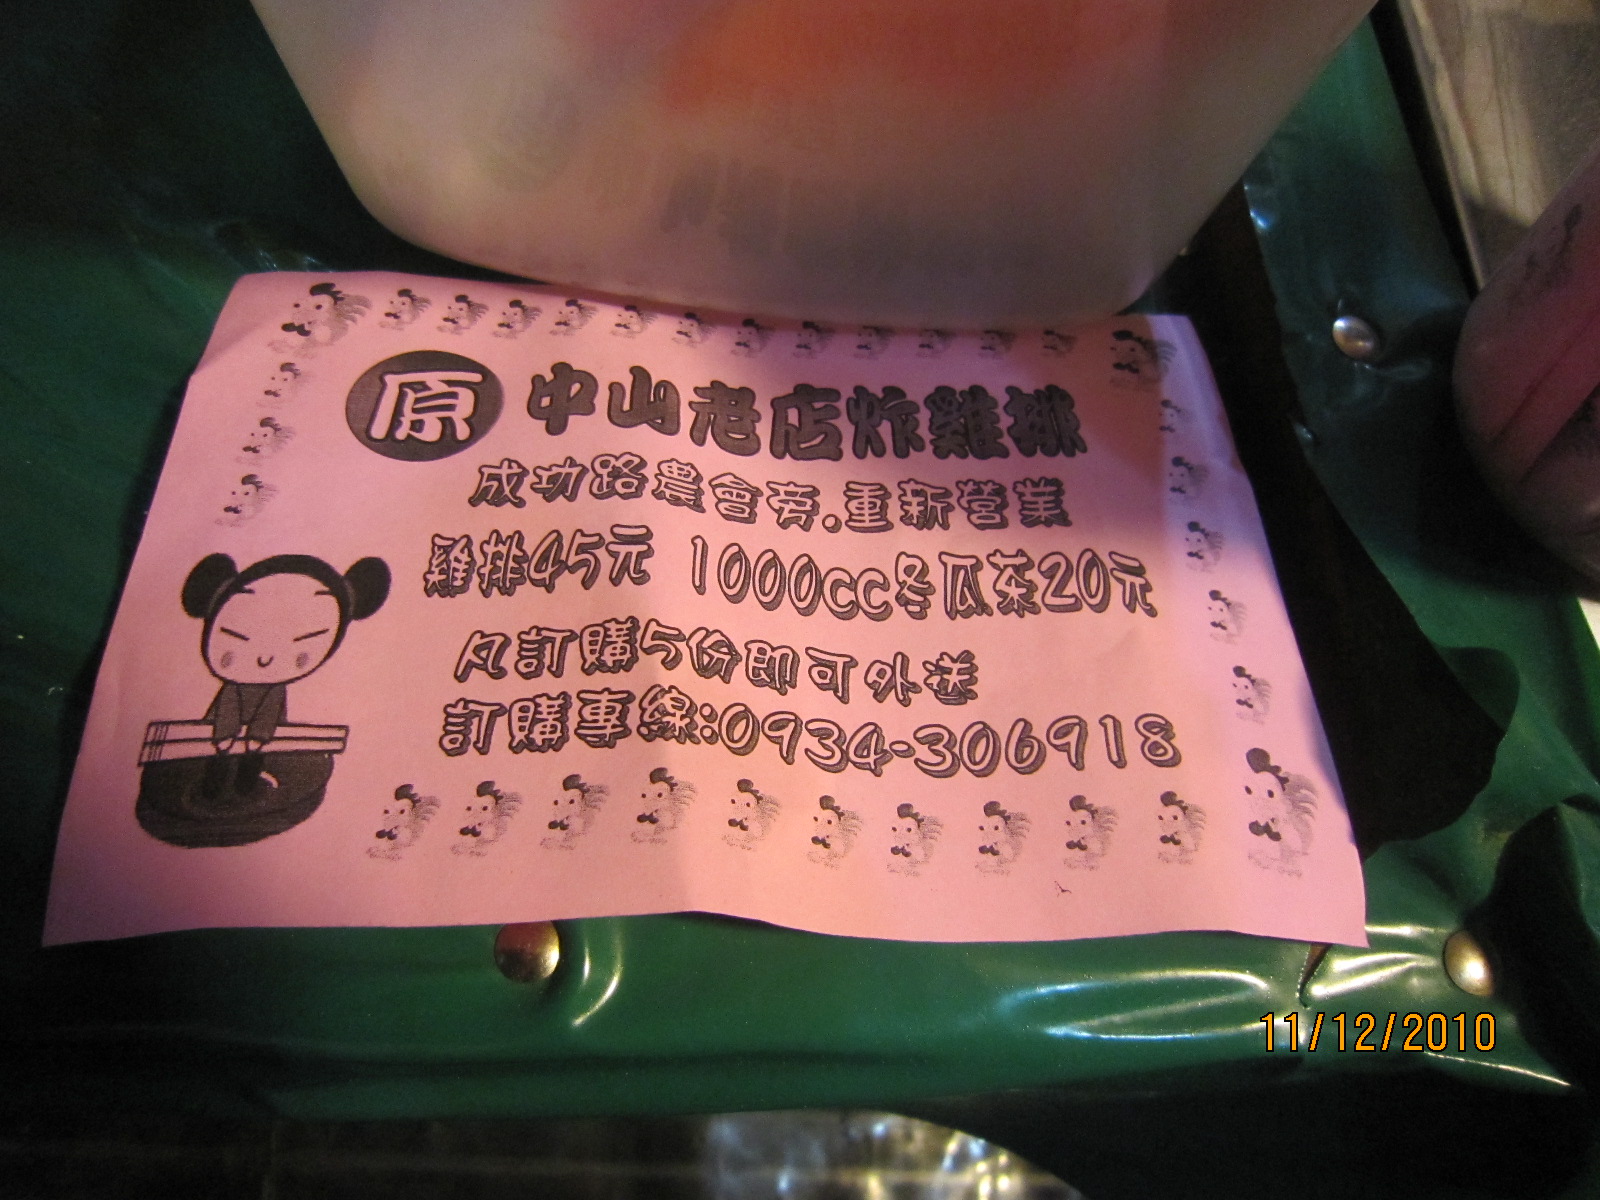 原 中山老店炸雞排
成功路農會旁.重新營業
雞排45元 1000cc冬瓜茶20元
訂購5份即可外送
訂購專線:0934-306918
11/12/2010